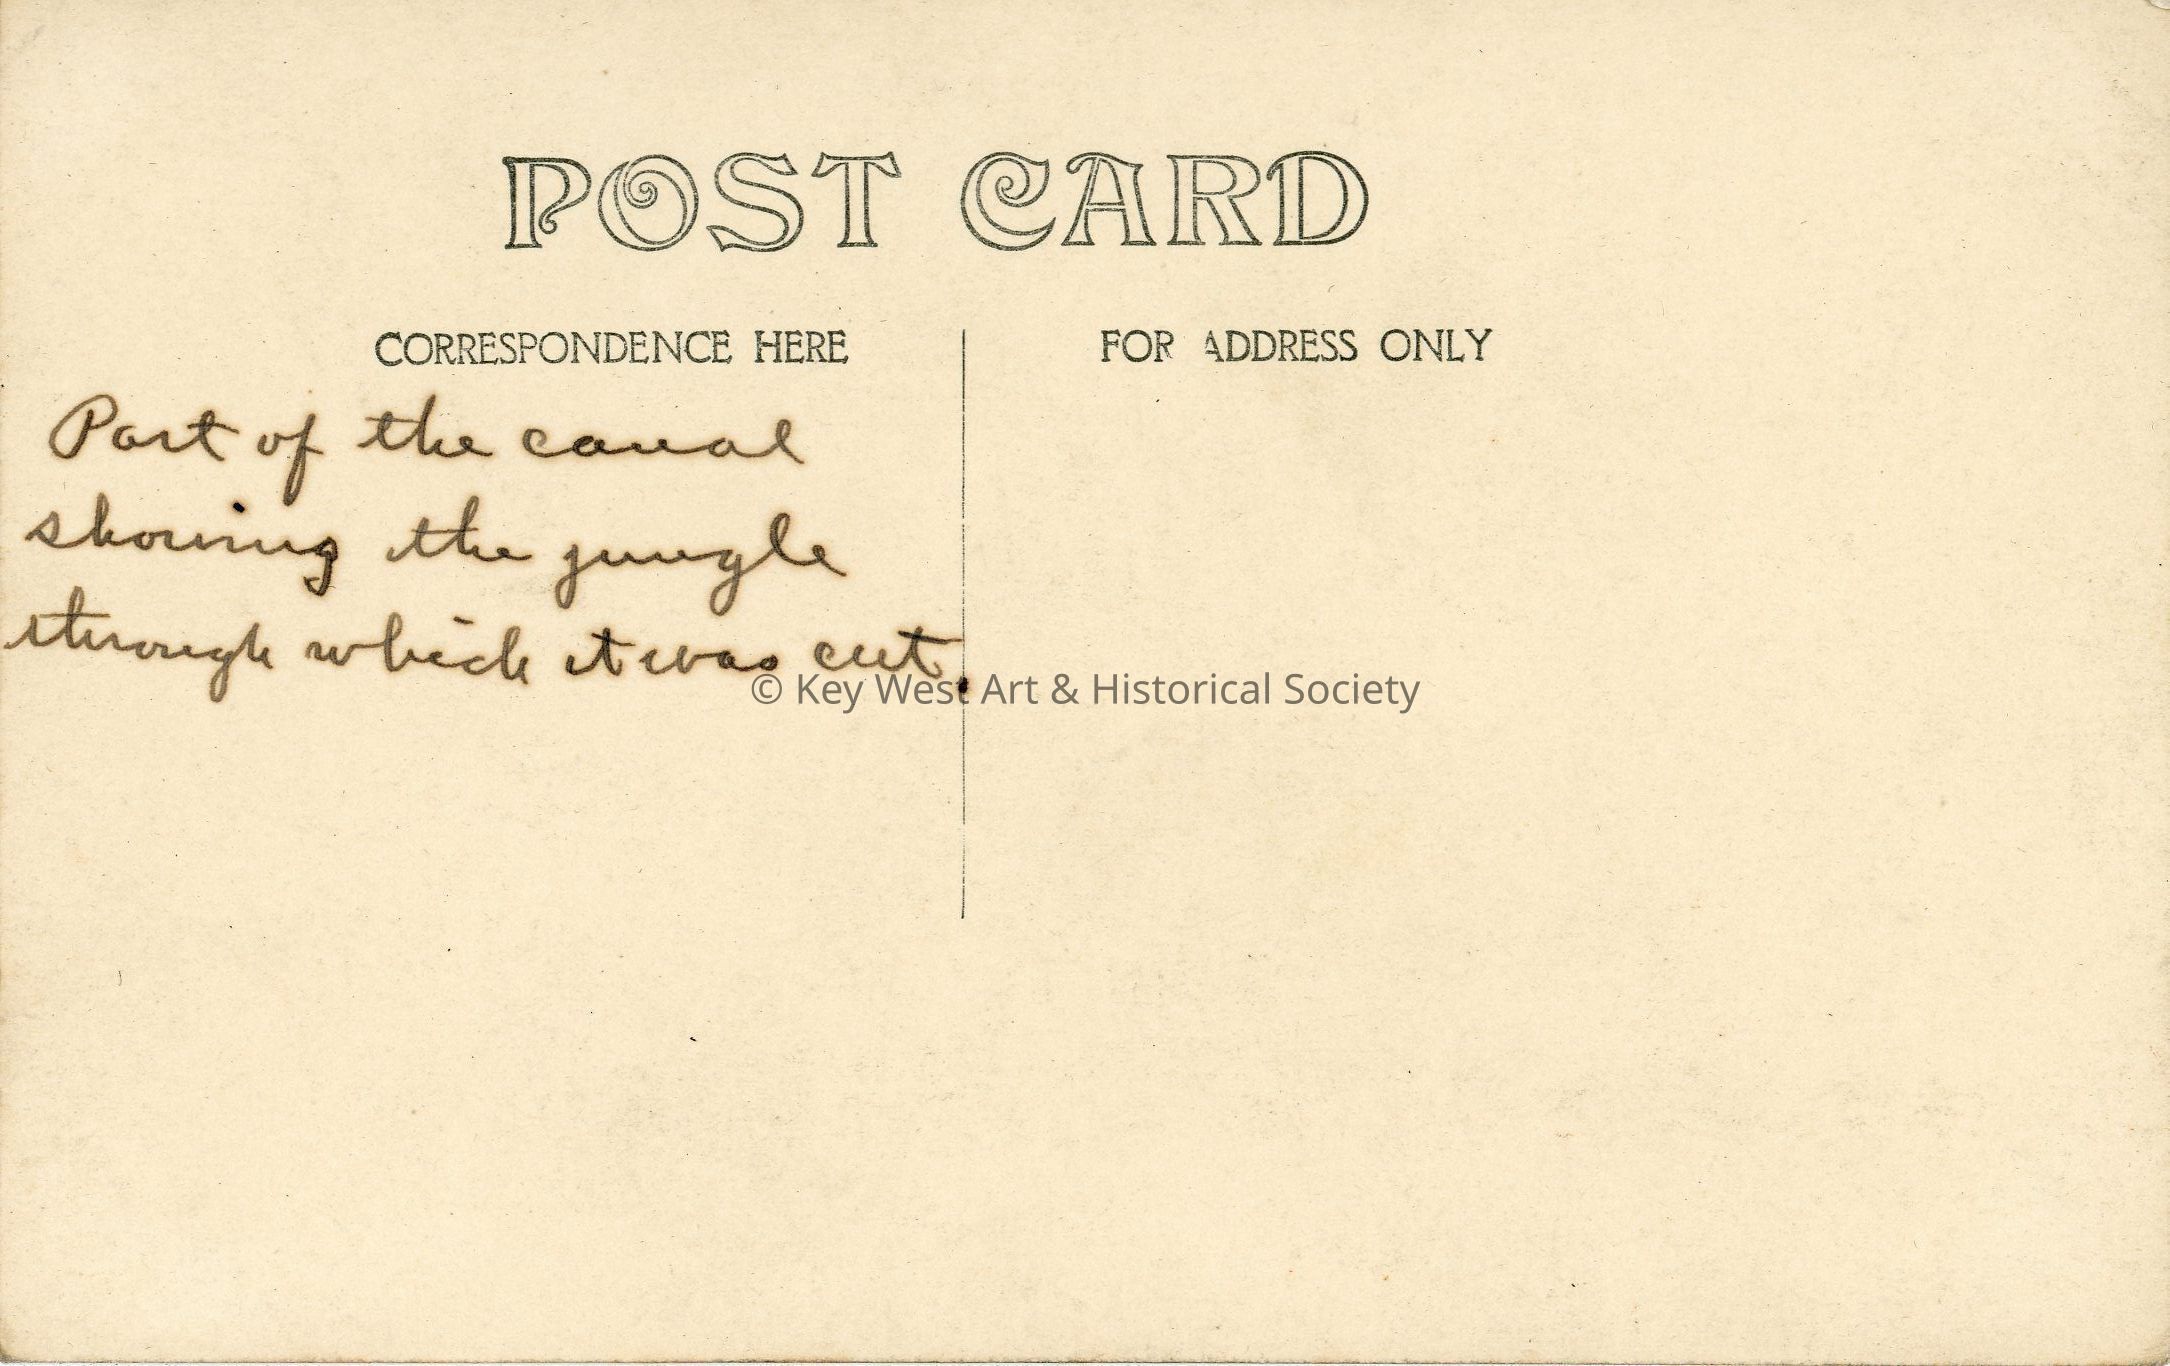 POST CARD
CORRESPONDENCE HERE
FOR ADDRESS ONLY
Part of the canal
showing the jungle
through which it was cut.
© Key West Art & Historical Society